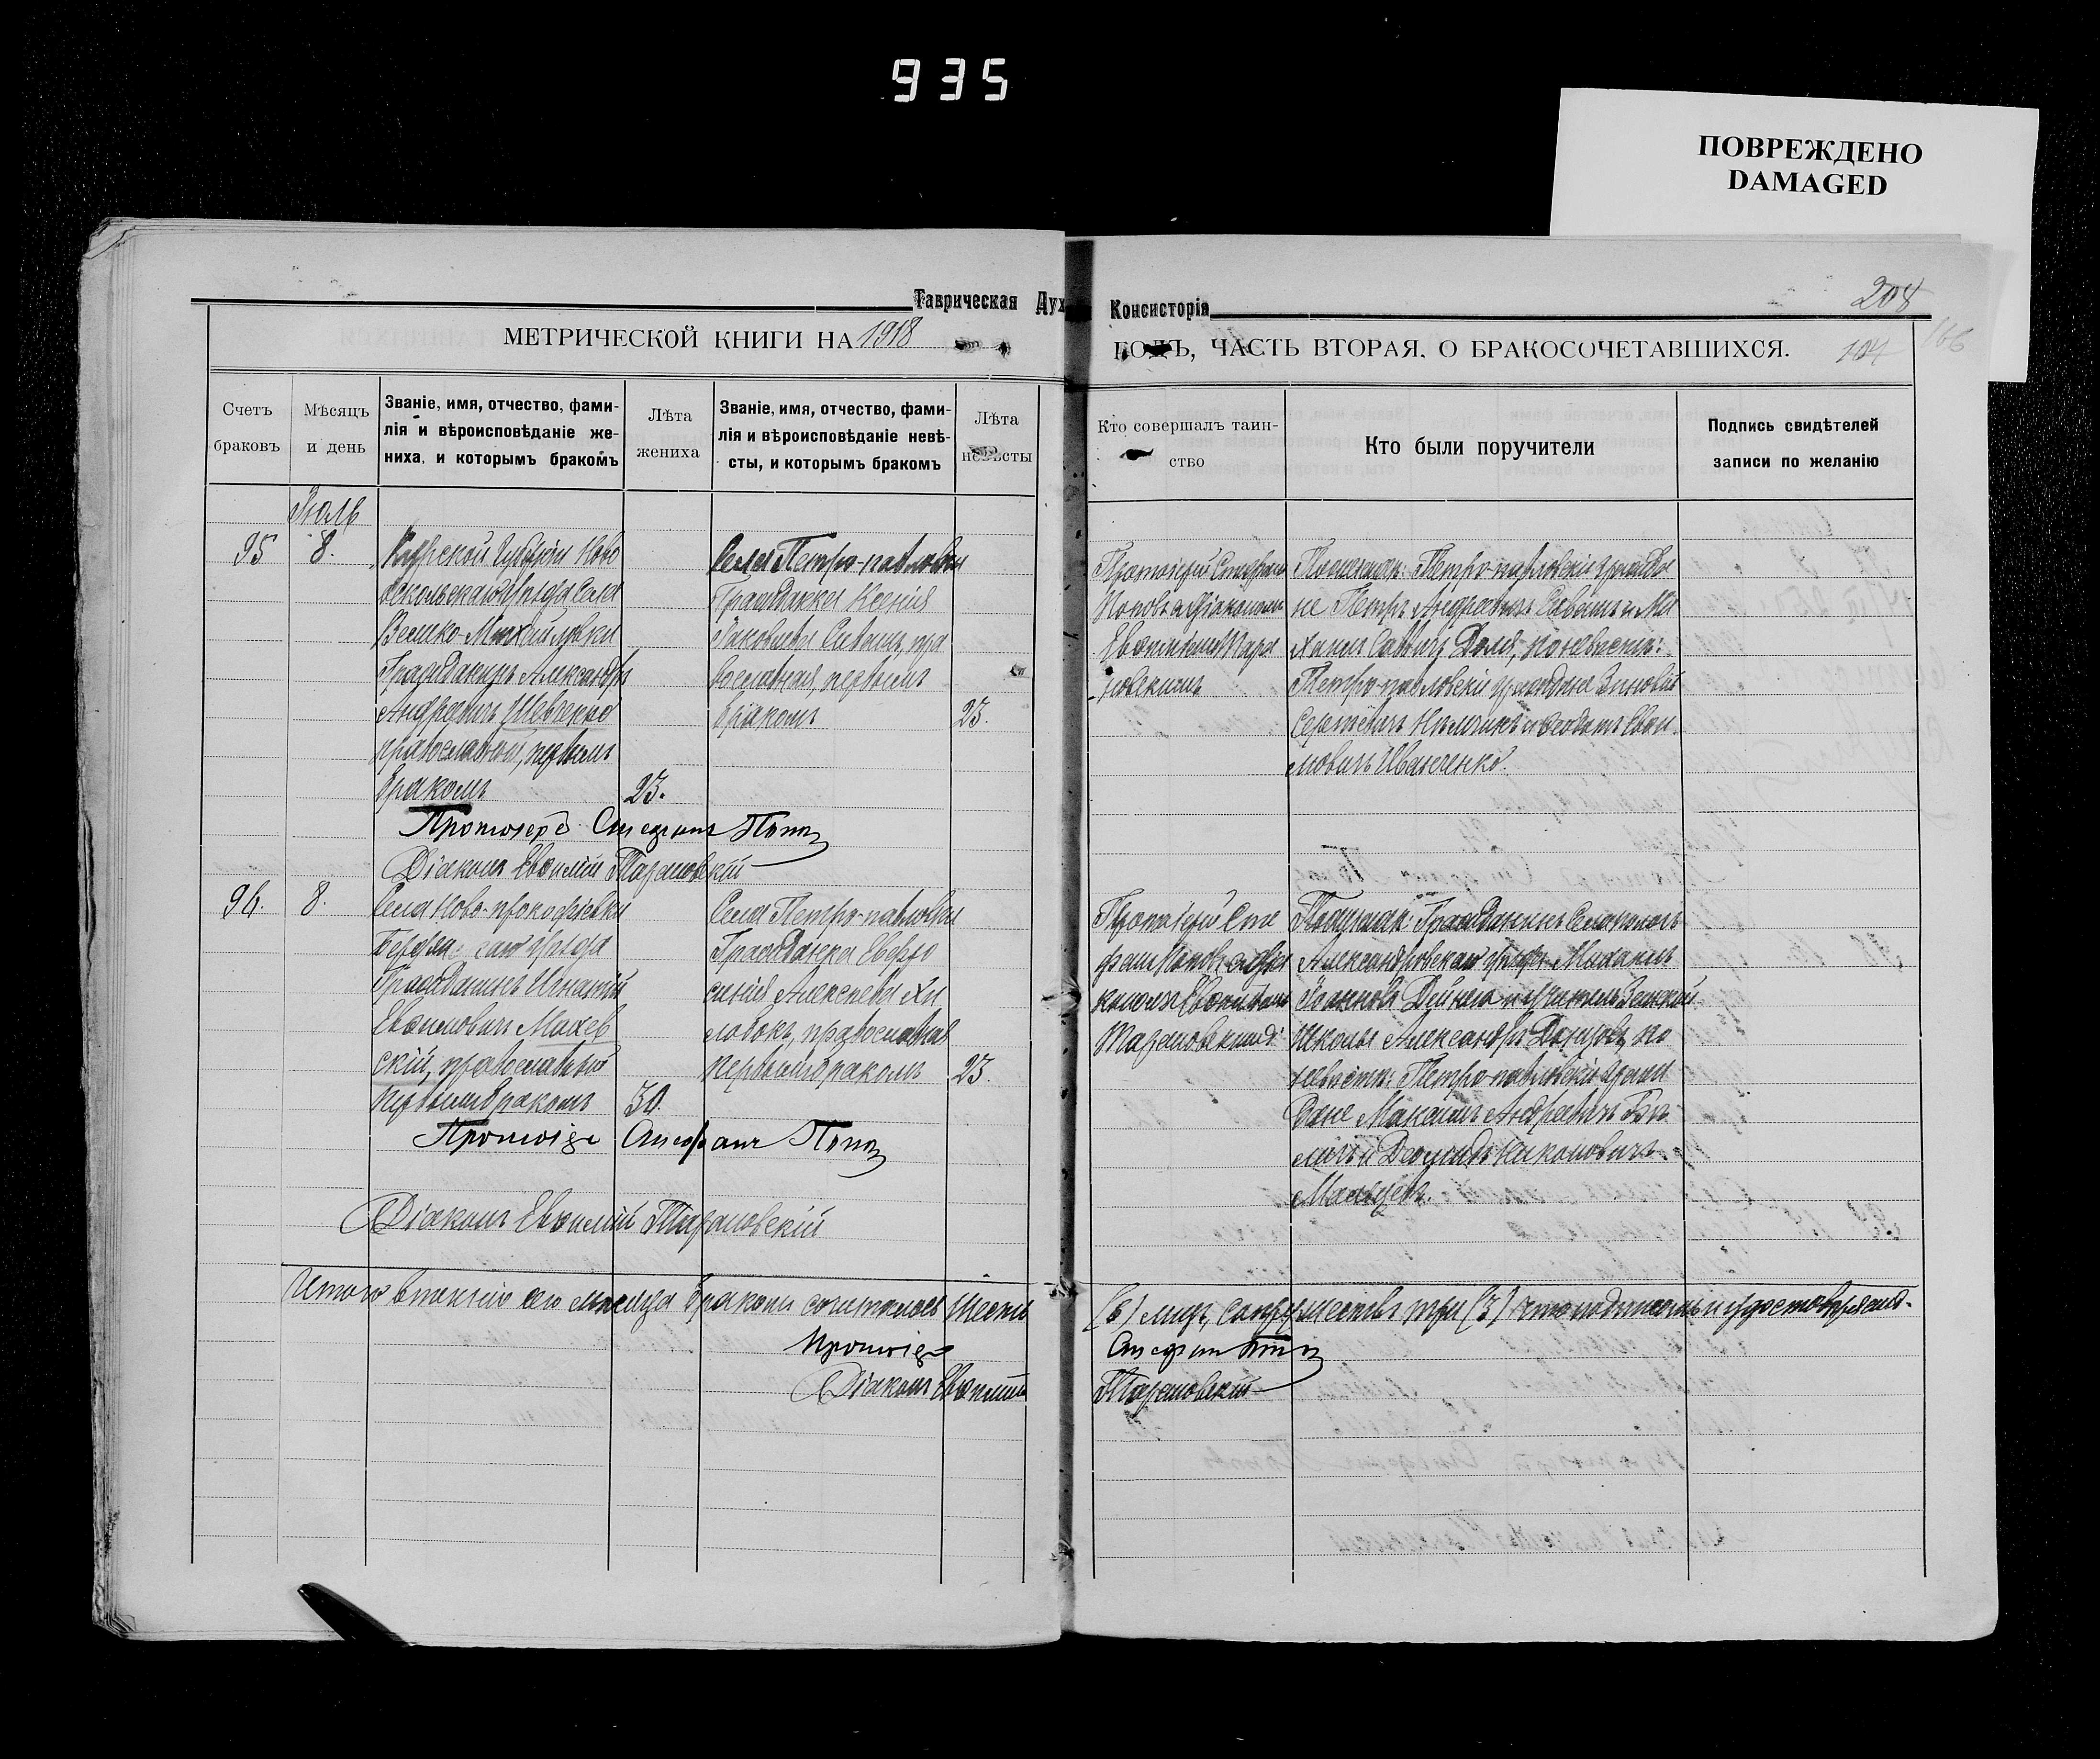 935
ПОВРЕЖДЕНО
DAMAGED
Таврическая Дух
Консисторія
208
МЕТРИЧЕСКОЙ КНИГИ НА 1918
ГОДЪ, ЧАСТЬ ВТОРАЯ, О БРАКОСОЧЕТАВШИХСЯ.
104
166
Счетъ браковъ
Мѣсяцъ и день
Званіе, имя, отчество, фами-
лія и вѣроисповѣданіе же-
ниха, и которымъ бракомъ
Лѣта жениха
Званіе, имя, отчество, фами-
лія и вѣроисповѣданіе невѣ-
сты, и которымъ бракомъ
Лѣта невѣсты
Кто совершалъ таин-
ство
Кто были поручители
Подпись свидѣтелей
записи по желанію
Іюль
95
8.
Курской Губерніи Ново
оскольскаго Уѣзда Села
Велико-Михайловки
Гражданинъ Александръ
Андреевичъ Шевченко
православный, первымъ
бракомъ
23.
Села Петро-павловки
Гражданка Ксенія
Яковлева Савашъ, пра
вославная, первымъ
бракомъ
23.
Протоіерей Стефанъ
Поповъ съ Діакономъ
Евфиміемъ Тара
новскимъ
По женихѣ: Петро-павловскіе гражда
не Петръ Андреевичъ Савашъ и Ми
хаилъ Саввичъ Доля; по невѣстѣ:
Петро-павловскіе граждане Зиновій
Сергѣевичъ и Ѳеодотъ Евфи
мовичъ Иванченко.
Протоіерей Стефанъ Поповъ
Діаконъ Евфимій Тарановскій
96.
8.
Села Ново-прокофьевки
Бердян: саго Уѣзда
Гражданинъ Игнатій
Евфимовичъ Махов
скій, православный
первымъ бракомъ
30.
Села Петро-павловки
Гражданка Евфро
синія Алексѣева Хи
лобокъ, православная
первымъ бракомъ
23.
Протоіерей Сте
фанъ Поповъ съ Діа
кономъ Евфиміемъ
Тарановскимъ
По женихѣ: Гражданинъ
Александровскаго уѣзда Михаилъ
Іоанновъ Дейнега и учитель Земской
Школы Александръ Донцовъ, по
невѣстѣ: Петро-павловскіе граж
дане Максимъ Андреевичъ
и Демидъ Никоновичъ
Мальцевъ.
Протоіерей Стефанъ Поповъ
Діаконъ Евфимій Тарановскій
Итого въ теченіе сего мѣсяца бракомъ сочеталось шесть
(6) лицъ, супружествъ три (3) въ томъ подписомъ и удостовѣряемъ.
Протоіерей Стефанъ Поповъ
Діаконъ Евфимій Тарановскій